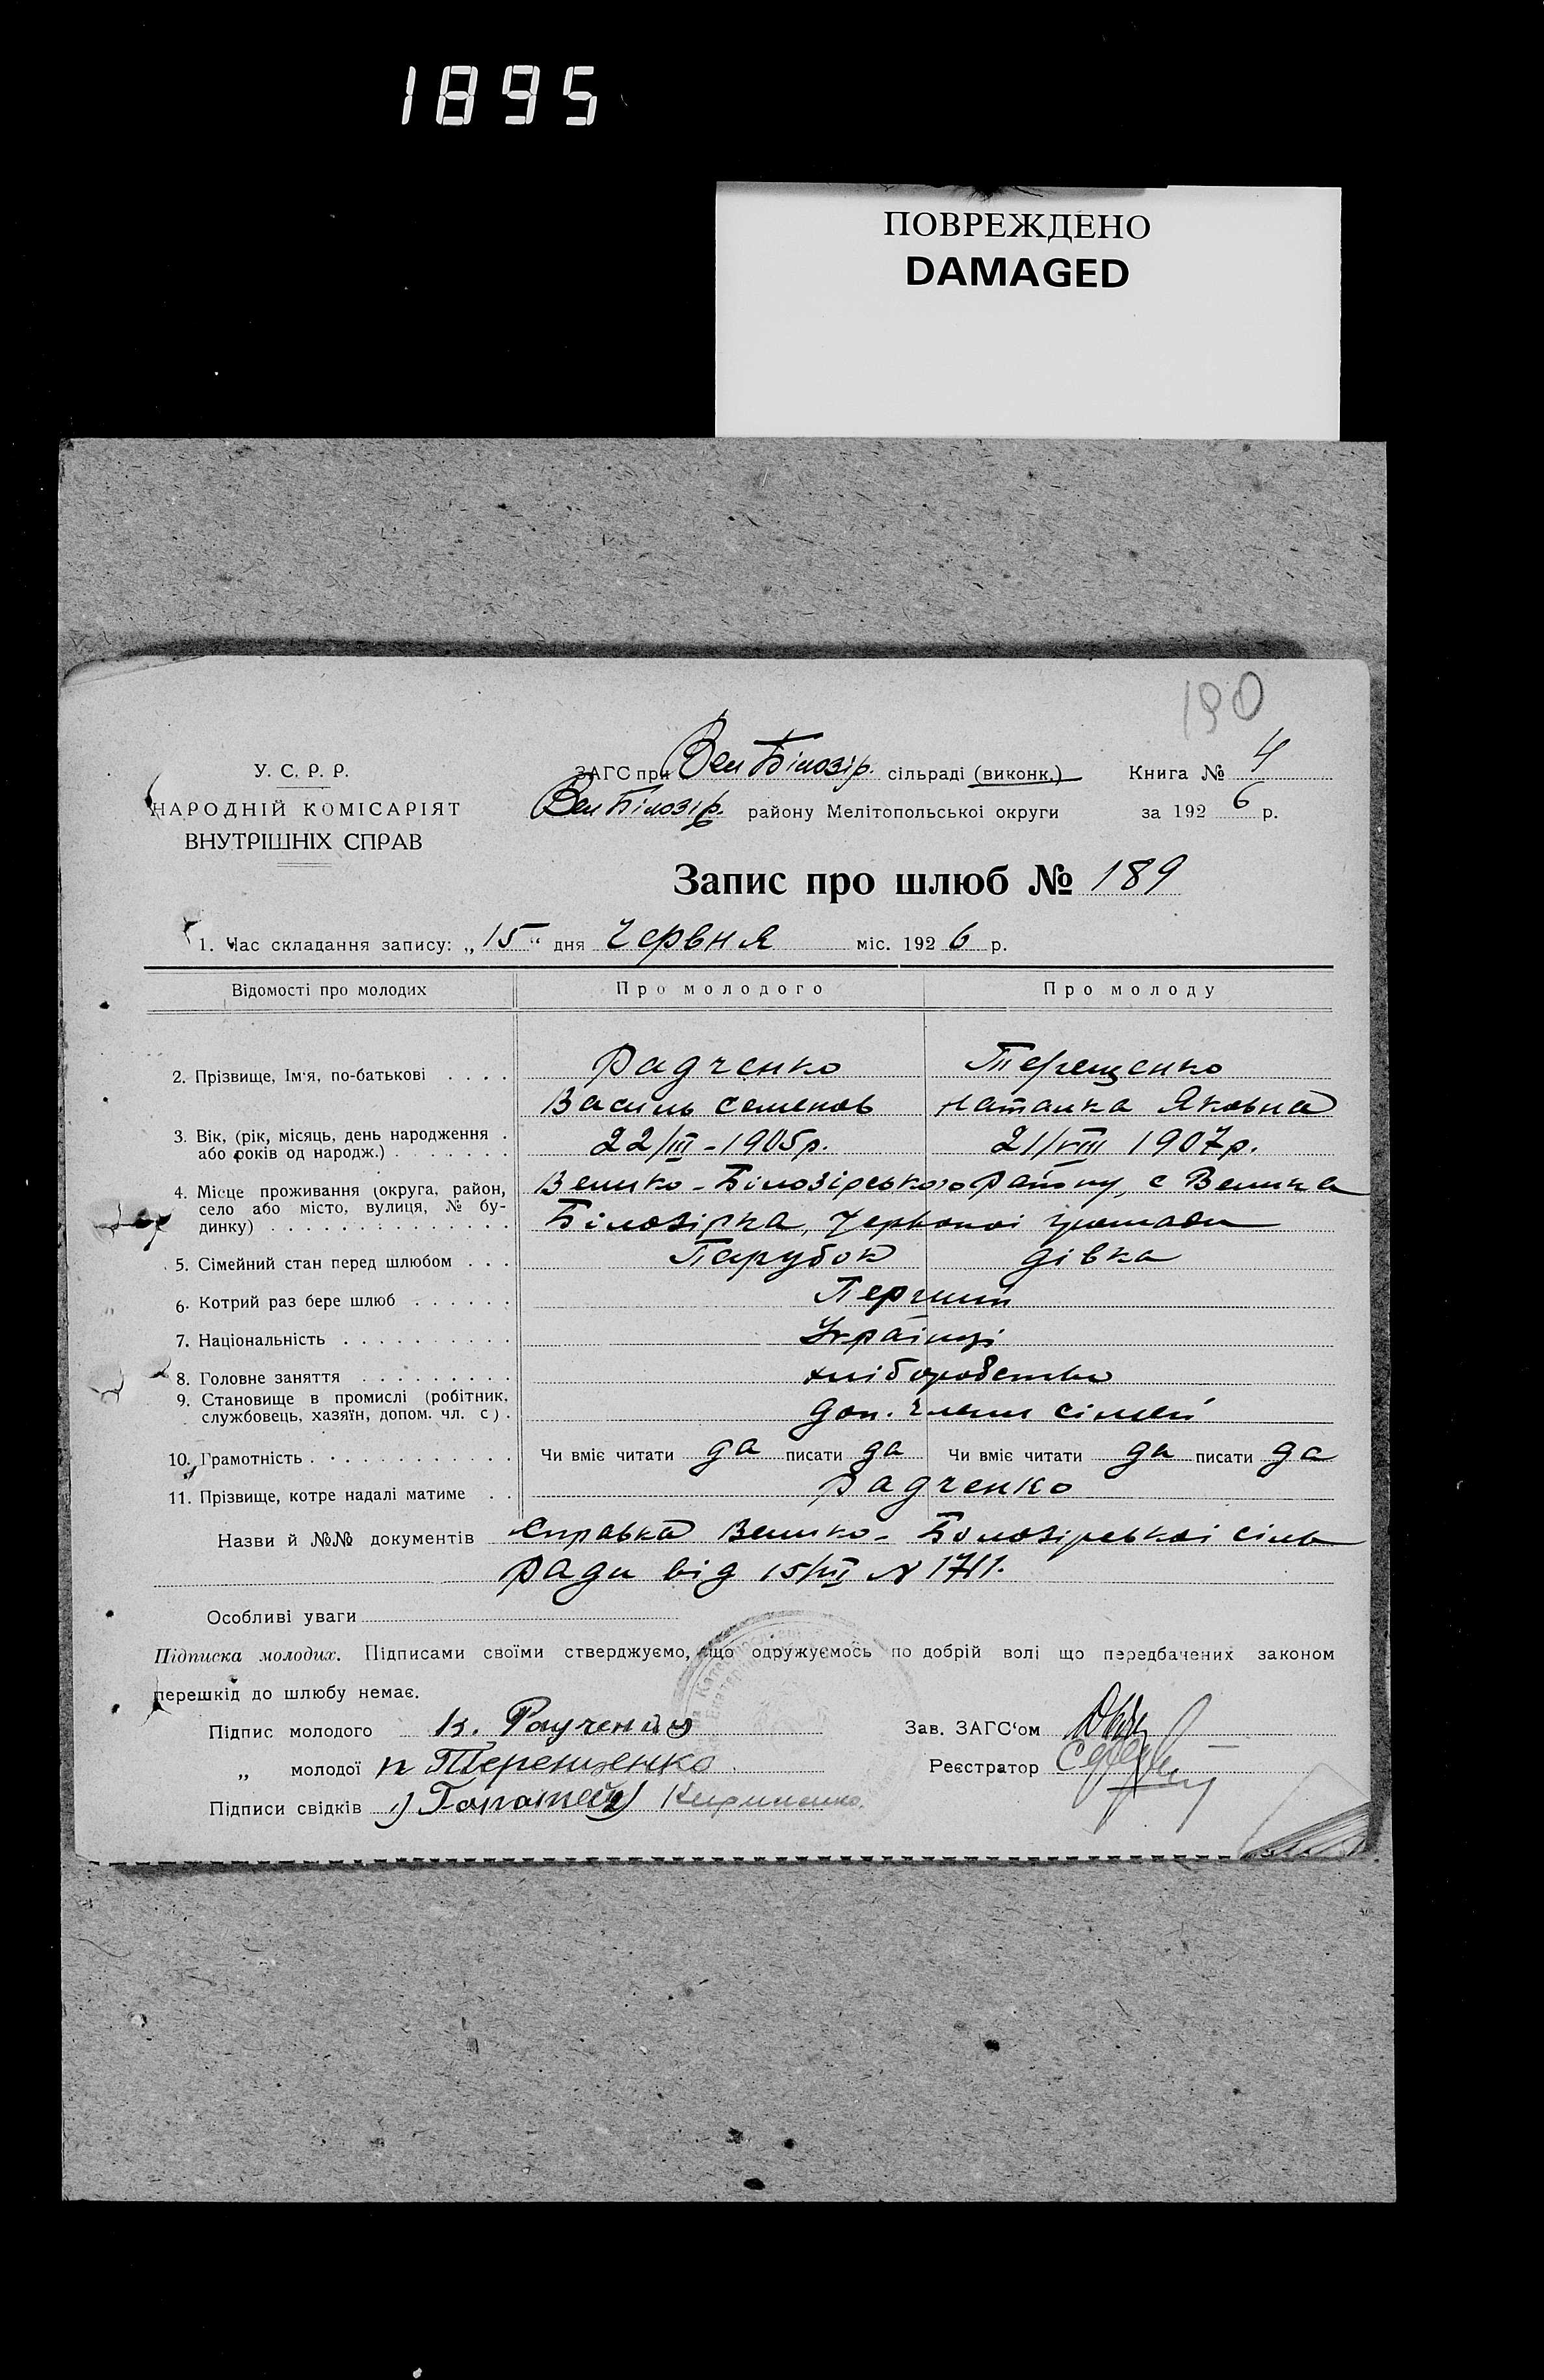 1895
ПОВРЕЖДЕНО
DAMAGED
190
У. С. Р. Р.
НАРОДНІЙ КОМІСАРІЯТ
ВНУТРІШНІХ СПРАВ
ЗАГС при Вел Білозір. сільраді (виконк.) Книга № 4
Вел Білозір. району Мелітопольської округи за 192 6 р.
Запис про шлюб № 189
1. Час складання запису: „15“ дня Червня міс. 192 6 р.
Відомості про молодих Про молодого Про молоду
2. Прізвище, Ім'я, по-батькові . . . . Радченко Терещенко
Василь Семенов Наталка Яковна
3. Вік, (рік, місяць, день народження .
або років од народж.) . . . . . . . 22/III - 1905р. 21/VIII 1907р.
4. Місце проживання (округа, район,
село або місто, вулиця, № бу-
динку) . . . . . . . . . . . . . .
Велико-Білозірського району, с Велика
Білозірка, Червоної громади
5. Сімейний стан перед шлюбом . . . Парубок дівка
6. Котрий раз бере шлюб . . . . . . Перший
7. Національність . . . . . . . . . . Українці
8. Головне заняття . . . . . . . . . хліборобство
9. Становище в промислі (робітник,
службовець, хазяїн, допом. чл. с) . доп. члени сімей
10. Грамотність . . . . . . . . . . . . Чи вміє читати да писати да Чи вміє читати да писати да
11. Прізвище, котре надалі матиме . . Радченко
Назви й №№ документів Справка Велико-Білозірської сіль
ради від 15/VI N 1711.
Особливі уваги
Підписка молодих. Підписами своїми стверджуємо, що одружуємось по добрій волі що передбачених законом
перешкід до шлюбу немає.
Підпис молодого Зав. ЗАГС'ом
„ молодої Терещенко Реєстратор
Підписи свідків 1)